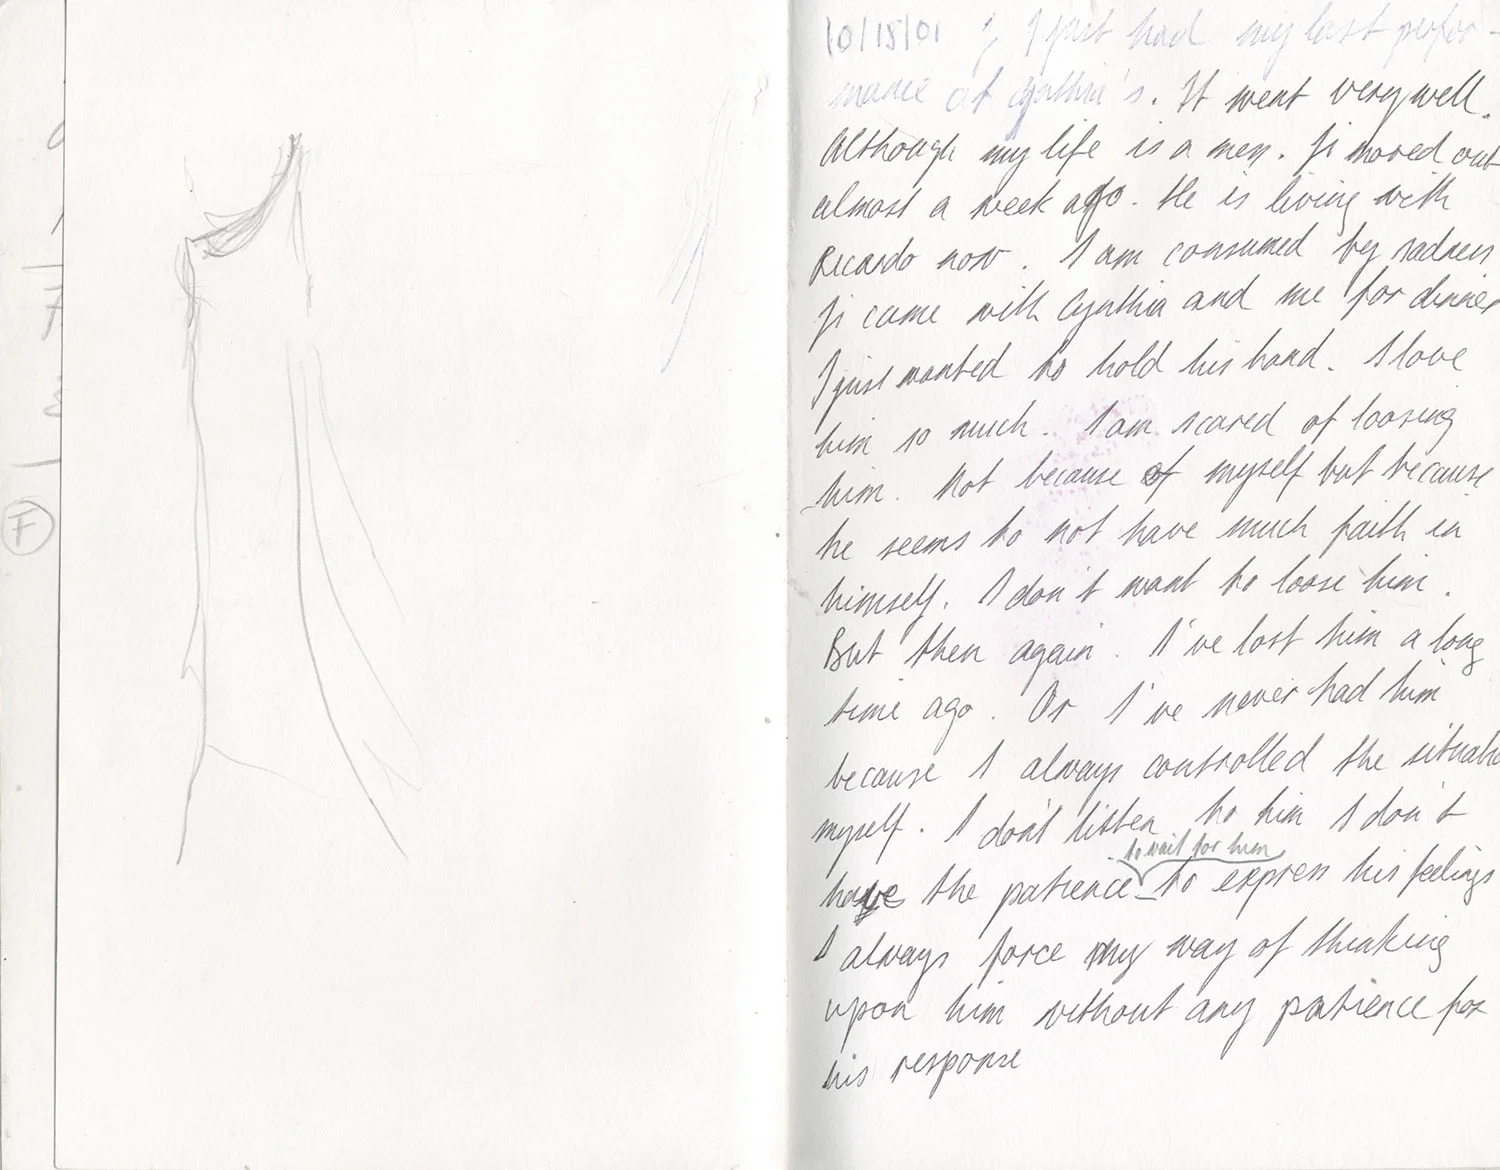 F
10/15/01 I just had my last perfor-
mance at Cynthia's. It went very well.
Although my life is a mess. Ji moved out
almost a week ago. He is living with
Ricardo now. I am consumed by sadness
Ji came with Cynthia and me for dinner
I just wanted to hold his hand. I love
him so much. I am scared of loosing
him. Not because of myself but because
he seems to not have much faith in
himself. I don't want to loose him.
But then again. I've lost him a long
time ago. Or I've never had him
because I always controlled the situatio
myself. I don't listen to him I don't
to wait for him
have the patience to express his feelings
I always force my way of thinking
upon him without any patience for
his response